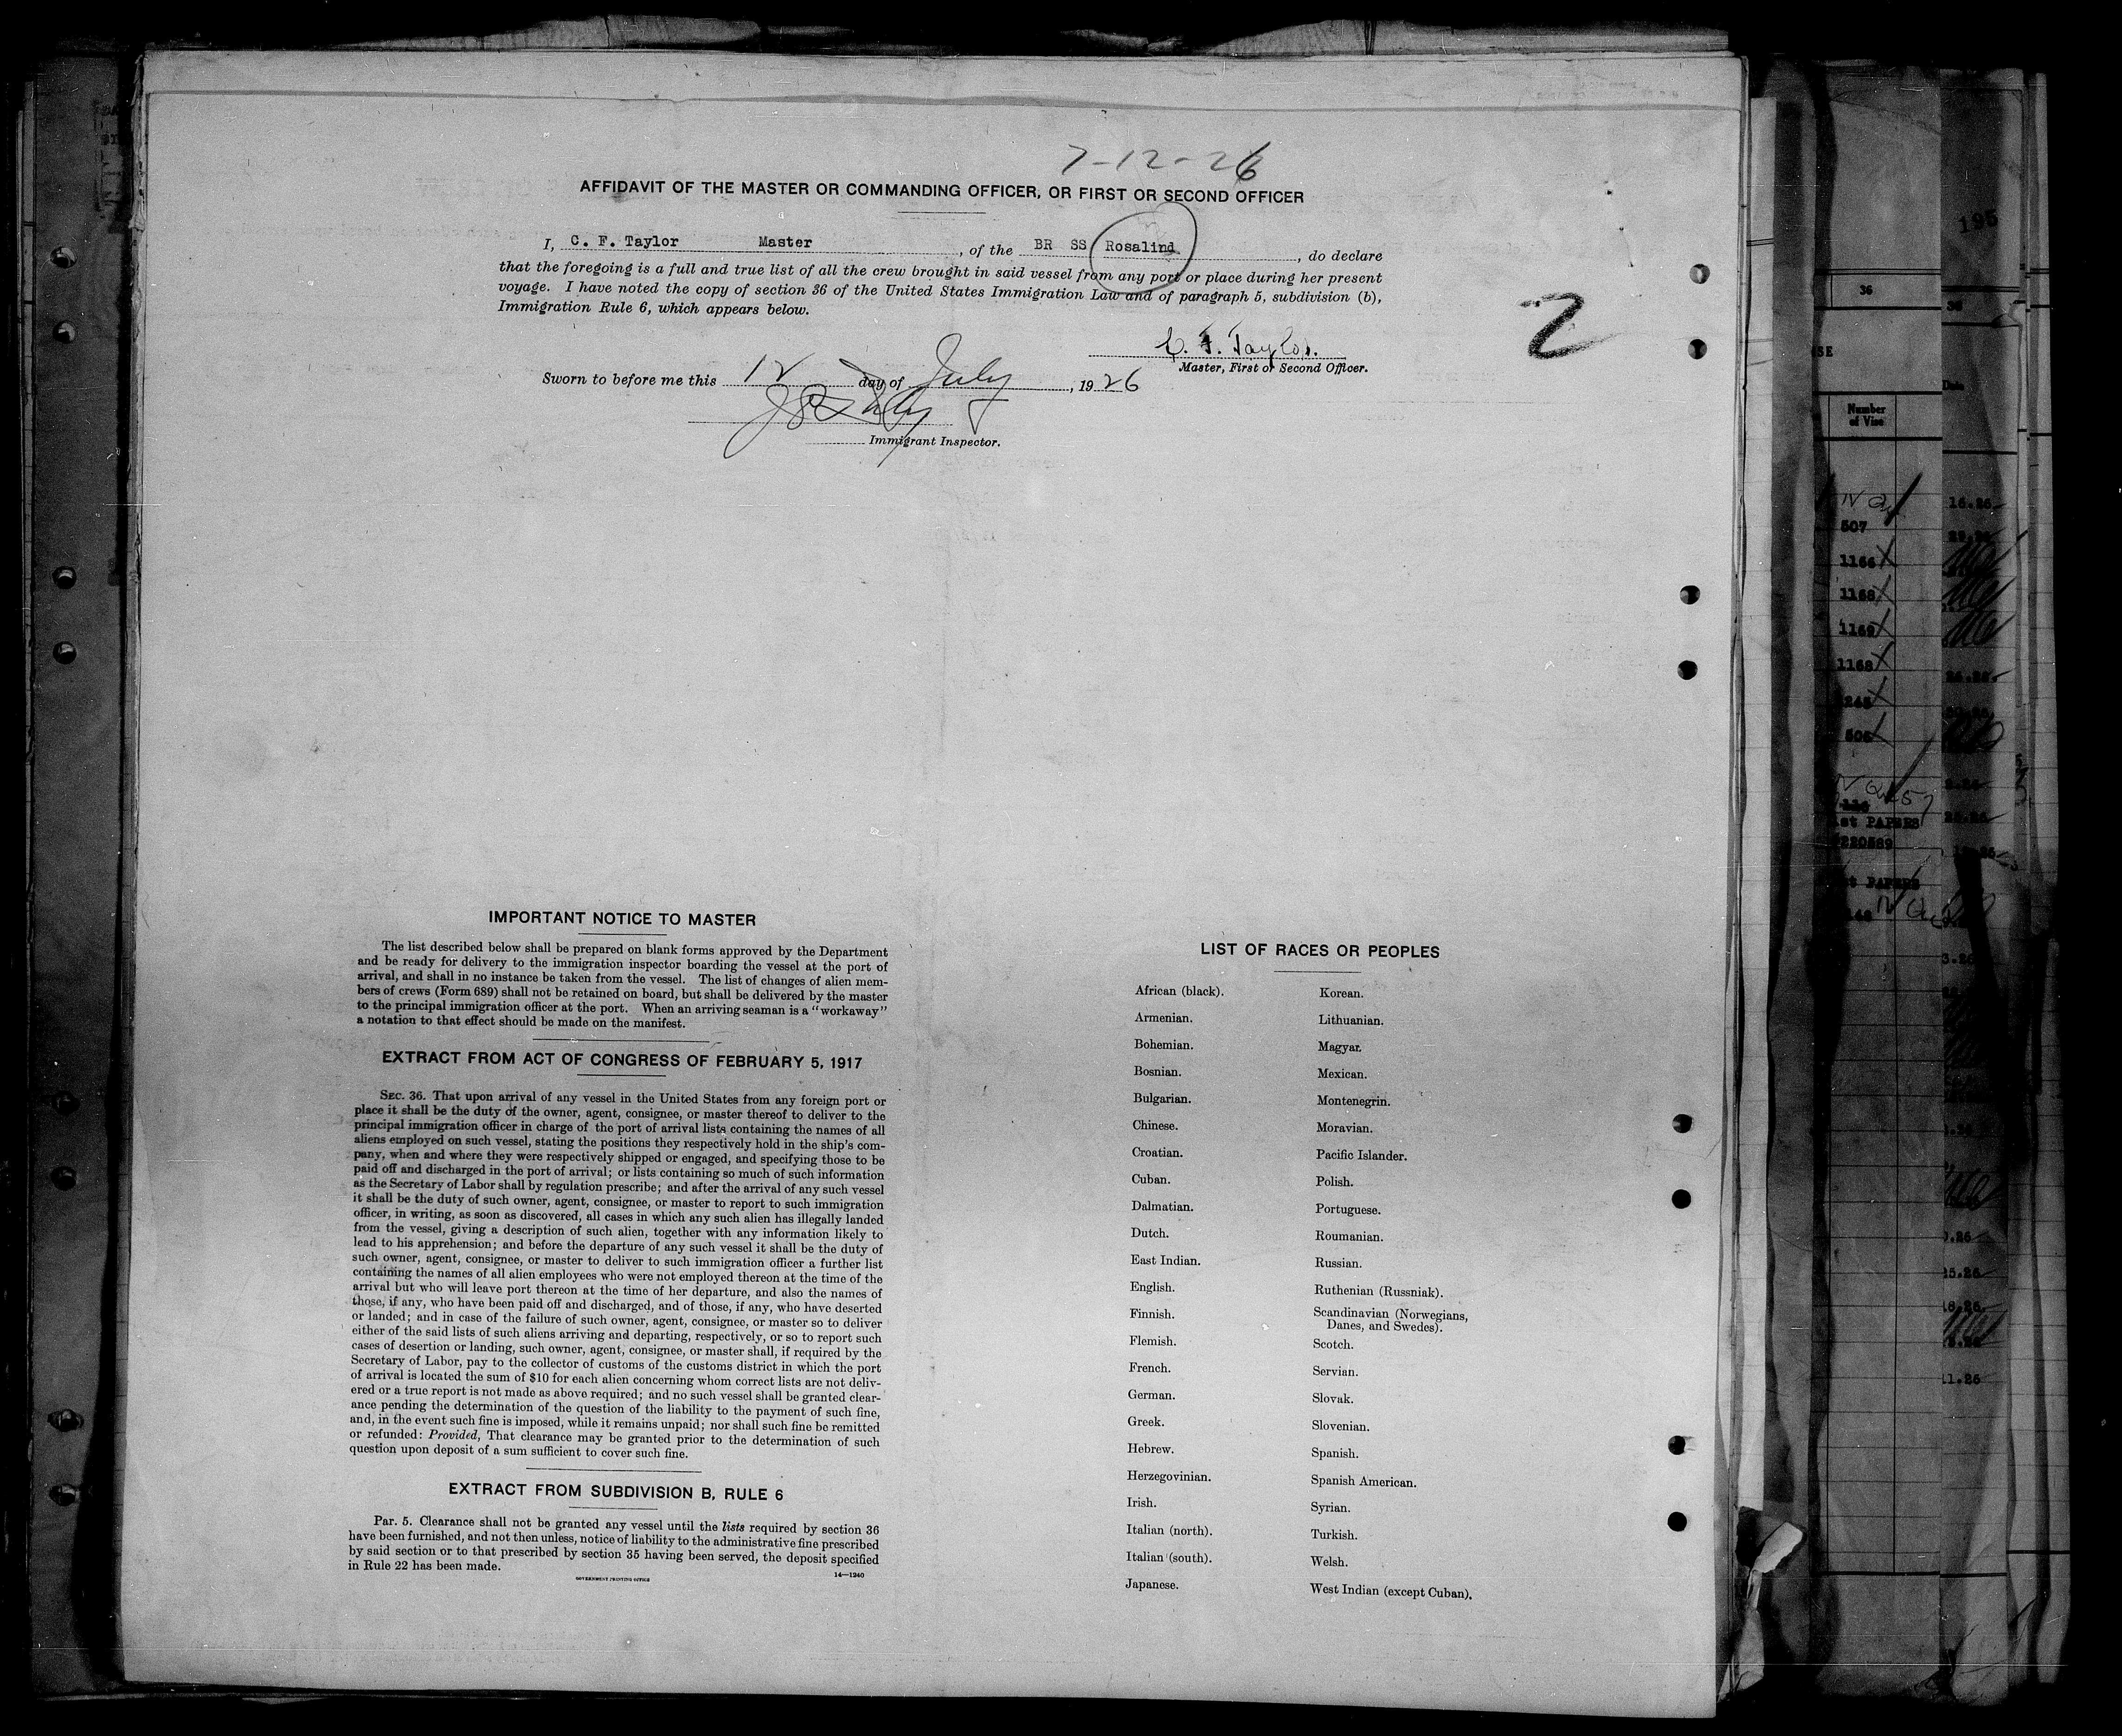 7-12-26
AFFIDAVIT OF THE MASTER OR COMMANDING OFFICER, OR FIRST OR SECOND OFFICER
I, C. F. Taylor Master, of the BR SS Rosalind, do declare
that the foregoing is a full and true list of all the crew brought in said vessel from any port or place during her present
voyage. I have noted the copy of section 36 of the United States Immigration Law and of paragraph 5, subdivision (b),
Immigration Rule 6, which appears below.
2
C. F. Taylor.
Master, First or Second Officer.
Sworn to before me this 12 day of July, 1926
Immigrant Inspector.
IMPORTANT NOTICE TO MASTER
The list described below shall be prepared on blank forms approved by the Department
and be ready for delivery to the immigration inspector boarding the vessel at the port of
arrival, and shall in no instance be taken from the vessel. The list of changes of alien mem-
bers of crews (Form 689) shall not be retained on board, but shall be delivered by the master
to the principal immigration officer at the port. When an arriving seaman is a "workaway"
a notation to that effect should be made on the manifest.
EXTRACT FROM ACT OF CONGRESS OF FEBRUARY 5, 1917
SEC. 36. That upon arrival of any vessel in the United States from any foreign port or
place it shall be the duty of the owner, agent, consignee, or master thereof to deliver to the
principal immigration officer in charge of the port of arrival lists containing the names of all
aliens employed on such vessel, stating the positions they respectively hold in the ship's com-
pany, when and where they were respectively shipped or engaged, and specifying those to be
paid off and discharged in the port of arrival; or lists containing so much of such information
as the Secretary of Labor shall by regulation prescribe; and after the arrival of any such vessel
it shall be the duty of such owner, agent, consignee, or master to report to such immigration
officer, in writing, as soon as discovered, all cases in which any such alien has illegally landed
from the vessel, giving a description of such alien, together with any information likely to
lead to his apprehension; and before the departure of any such vessel it shall be the duty of
such owner, agent, consignee, or master to deliver to such immigration officer a further list
containing the names of all alien employees who were not employed thereon at the time of the
arrival but who will leave port thereon at the time of her departure, and also the names of
those, if any, who have been paid off and discharged, and of those, if any, who have deserted
or landed; and in case of the failure of such owner, agent, consignee, or master so to deliver
either of the said lists of such aliens arriving and departing, respectively, or so to report such
cases of desertion or landing, such owner, agent, consignee, or master shall, if required by the
Secretary of Labor, pay to the collector of customs of the customs district in which the port
of arrival is located the sum of $10 for each alien concerning whom correct lists are not deliv-
ered or a true report is not made as above required; and no such vessel shall be granted clear-
ance pending the determination of the question of the liability to the payment of such fine,
and, in the event such fine is imposed, while it remains unpaid; nor shall such fine be remitted
or refunded: Provided, That clearance may be granted prior to the determination of such
question upon deposit of a sum sufficient to cover such fine.
EXTRACT FROM SUBDIVISION B, RULE 6
Par. 5. Clearance shall not be granted any vessel until the lists required by section 36
have been furnished, and not then unless, notice of liability to the administrative fine prescribed
by said section or to that prescribed by section 35 having been served, the deposit specified
in Rule 22 has been made.
GOVERNMENT PRINTING OFFICE 14—1240
LIST OF RACES OR PEOPLES
African (black).
Armenian.
Bohemian.
Bosnian.
Bulgarian.
Chinese.
Croatian.
Cuban.
Dalmatian.
Dutch.
East Indian.
English.
Finnish.
Flemish.
French.
German.
Greek.
Hebrew.
Herzegovinian.
Irish.
Italian (north).
Italian (south).
Japanese.
Korean.
Lithuanian.
Magyar.
Mexican.
Montenegrin.
Moravian.
Pacific Islander.
Polish.
Portuguese.
Roumanian.
Russian.
Ruthenian (Russniak).
Scandinavian (Norwegians,
Danes, and Swedes).
Scotch.
Servian.
Slovak.
Slovenian.
Spanish.
Spanish American.
Syrian.
Turkish.
Welsh.
West Indian (except Cuban).
36
Number
of Vise
507
1166
1168
1169
1168
PAPERS
220589
PAPERS
195
16.26
11.26